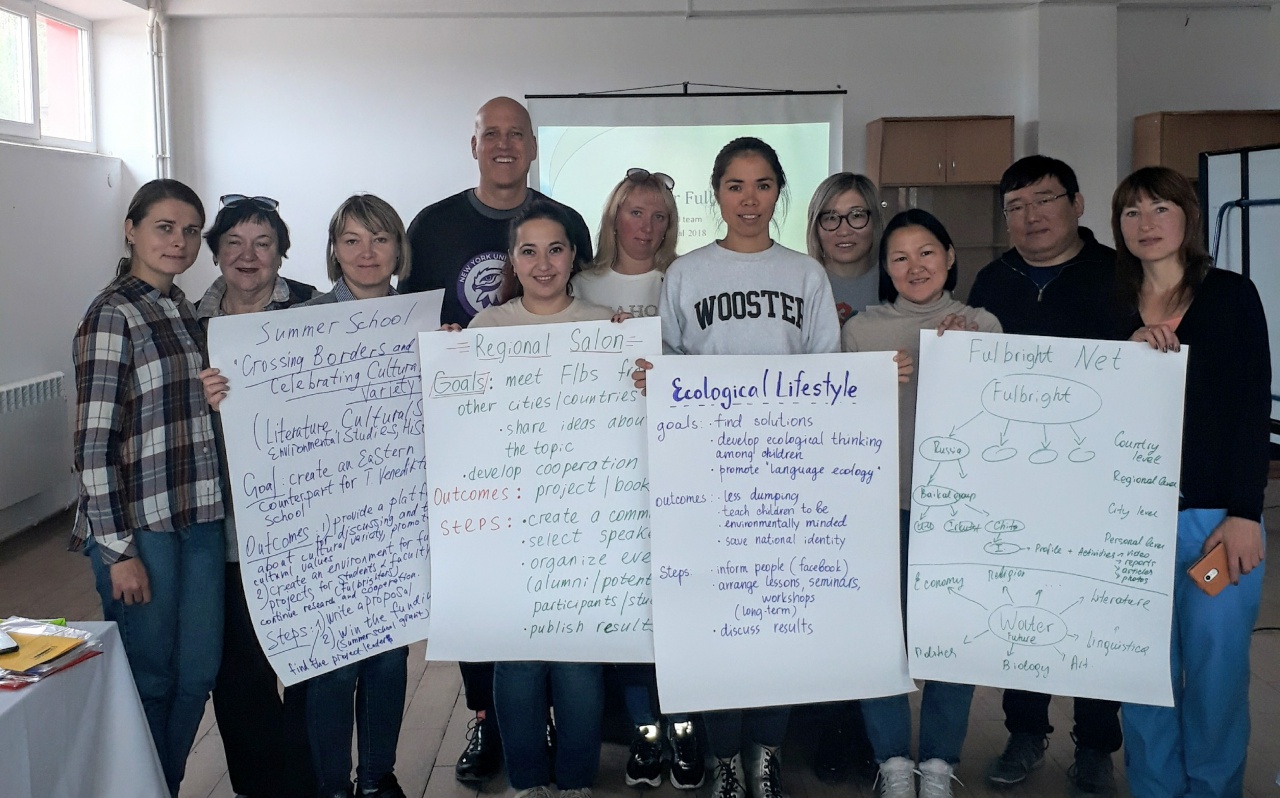 Summer School
"Crossing Borders and
Celebrating Cultural
Variety
(Literature, Cultural S
Environmental Studies, His
Goal: create an Eastern
Counterpart for T
school
Outcomes: 1) provide a platf
for discussing and
about cultural variety, promot
cultural values
2) create an environment for fu
projects for students & faculty
(Fulbrighters)
continue research and cooperation.
Steps: 1) write a proposal
2) win the fundi
(Summer school grant)
find the project leader
Regional Salon
Goals: meet Flbs fr
other cities/countries
• share ideas abou
the topic
• develop cooperation
Outcomes: project/book
Steps: • create a comm
• select speak
• organize eve
(alumni/potent
participants/stu
• publish result
Ecological Lifestyle
goals: • find solutions
• develop ecological thinking
among children
• promote "language ecology"
outcomes: • less dumping
• teach children to be
environmentally minded
• save national identity
Steps: • inform people (facebook)
• arrange lessons, seminars,
workshops
(long-term)
• discuss results
Fulbright Net
Fulbright
Russia
Country
level
Regional level
Baikal group
City level
Chita
Personal level
I → Profile + Activities → video
→ reports
→ articles
→ photos
Economy
Religion
Literature
Water
Future
Linguistica
Politics
Biology
Art
NEW YORK UNI
WOOSTER
r Ful
team
2018